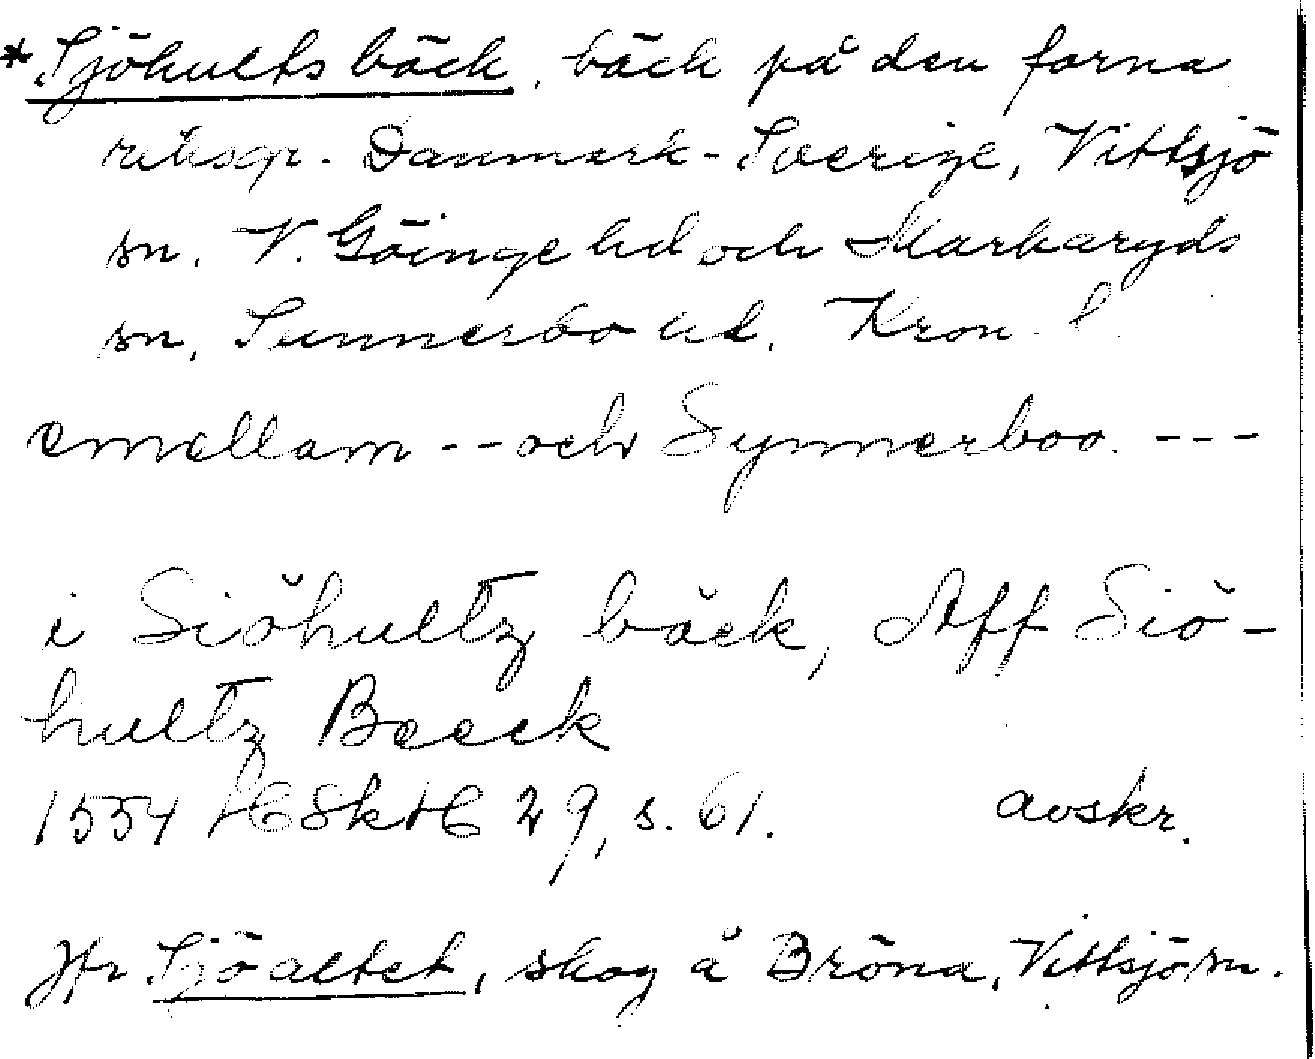 *Sjöhultsbäck, bäck på den forna
riksgr. Danmark-Sverige, Vittsjö
sn, V. Göinge hd och Markaryds
sn, Sunnerbo hd, Kron. l
emellam -- och Synnerboo. ---
i Siöhultz bäck, Aff Siö-
hultz Beeck
1554 HSkH 29, s. 61. avskr.
Jfr Sjöaltet, skog å Bröna, Vittsjö sn.